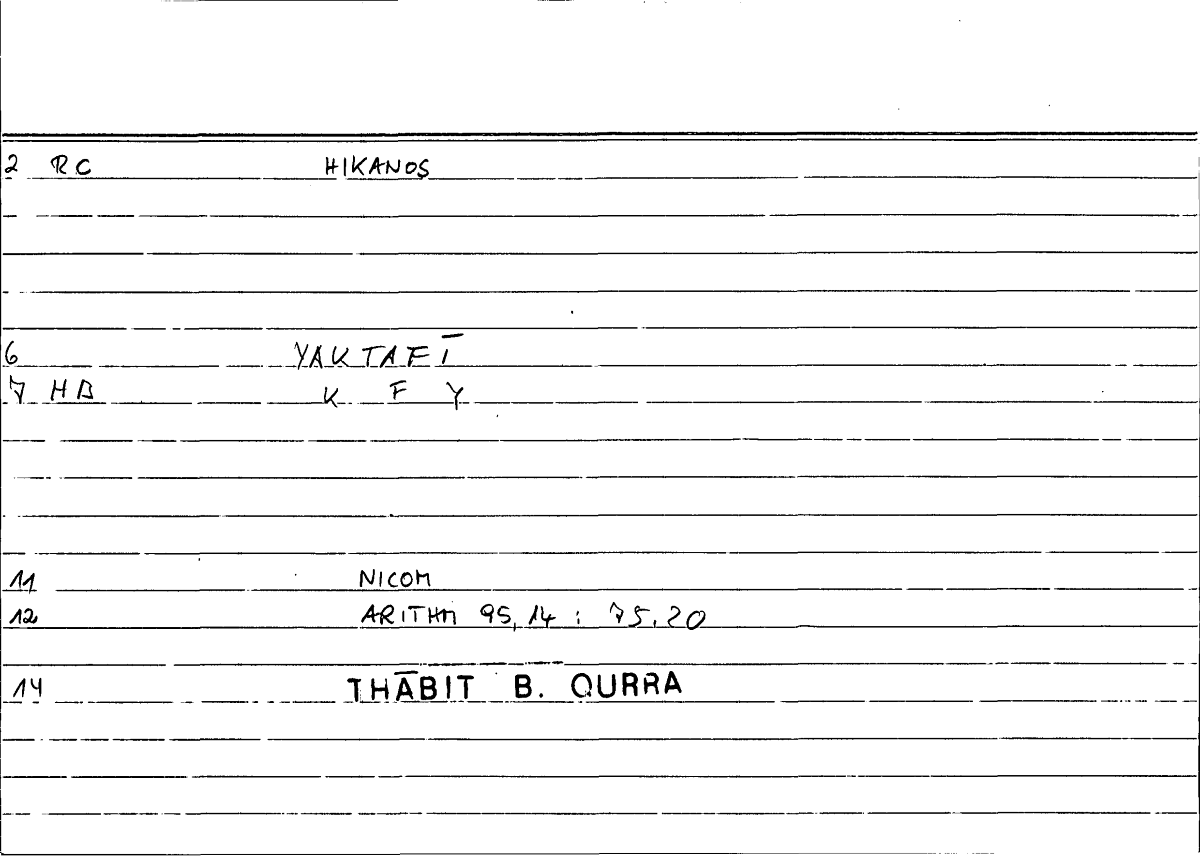 2 RC HIKANOS
6 YAKTAFĪ
7 HB K F Y
11 NICOM
12 ARITHM 95,14 : 75.20
14 THĀBIT B. QURRA